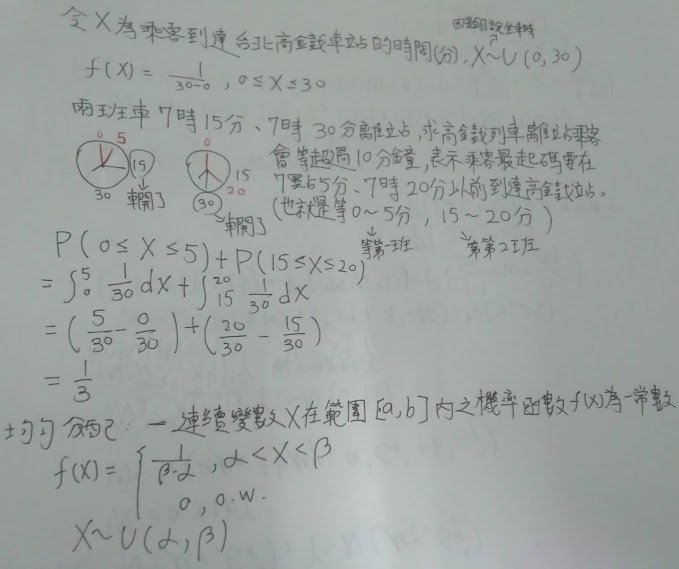 因題目說坐車時
令X為乘客到達台北高鐵車站的時間(分), X~U(0,30)
f(X) = 1/(30-0), 0≤X≤30
兩班車7時15分、7時30分離站,求高鐵列車離站乘客
會等超過10分鐘,表示乘客最起碼要在
7點5分、7時20分以前到達高鐵站。
(也就是等0~5分, 15~20分)
0 5 15 30 車開了
0 15 20 30 車開了
等第一班 等第2班
P(0≤X≤5)+P(15≤X≤20)
= ∫₀⁵ 1/30 dx + ∫₁₅²⁰ 1/30 dx
= (5/30 - 0/30) + (20/30 - 15/30)
= 1/3
均勻分配: 一連續變數X在範圍[a,b]內之機率函數f(X)為一常數
f(X) = { 1/(β-α), α<X<β
0, o.w.
X~U(α,β)